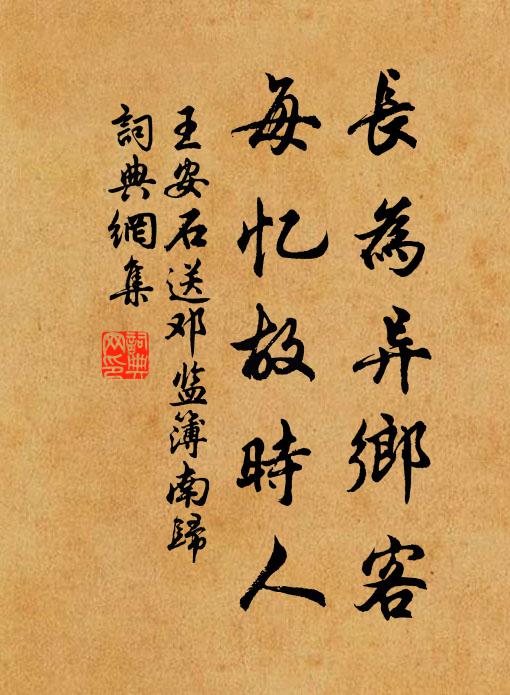 長為异鄉客
每忆故時人
王安石送邓监簿南歸
詞典網集